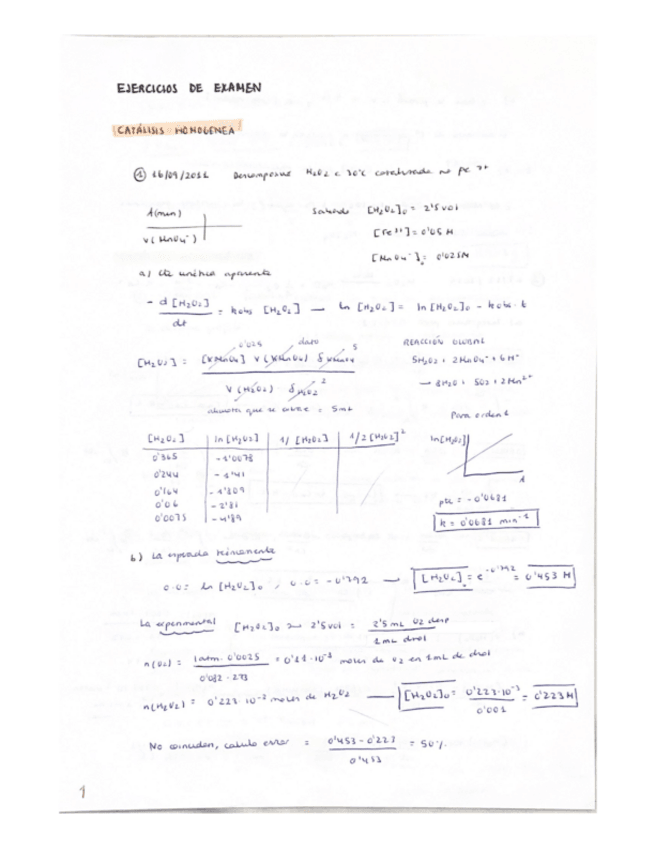 EJERCICIOS DE EXAMEN
CATÁLISIS HOMOGENEA
① 16/09/2011 Descomposic H2O2 a 30ºC catalizada no Fe 3+
t(min)
V(MnO4-)
Sabiendo [H2O2]0 = 2'5 vol
[Fe3+] = 0'05 M
[MnO4-]0 = 0'025N
a) Cte cinética aparente
- d[H2O2]/dt = kobs [H2O2] — ln [H2O2] = ln [H2O2]0 - kobs · t
0'025 dato 5
[H2O2] = [KMnO4] V(KMnO4) δ KMnO4 / V(H2O2) δ H2O2 2
alícuota que se extrae = 5mL
REACCIÓN GLOBAL
5H2O2 + 2MnO4- + 6H+
→ 8H2O + 5O2 + 2Mn2+
Para orden 1
[H2O2] ln[H2O2] 1/[H2O2] 1/2[H2O2]2
0'365 -1'0073
0'244 -1'41
0'164 -1'809
0'06 -2'81
0'0075 -4'89
ln[H2O2]
t
pte = -0'0681
k = 0'0681 min-1
b) La esperada teóricamente
0.0 = ln [H2O2]0 , 0.0 = -0'792 → [H2O2]0 = e-0'792 = 0'453 M
La experimental [H2O2]0 ~ 2'5 vol = 2'5 mL O2 desp / 1 mL disol
n(O2) = 1atm · 0'0025 / 0'082 · 273 = 0'11·10-3 moles de O2 en 1mL de disol
n(H2O2) = 0'223·10-3 moles de H2O2 → [H2O2]0 = 0'223·10-3 / 0'001 = 0'223 M
No coinciden, calculo error = 0'453 - 0'223 / 0'453 = 50%
1